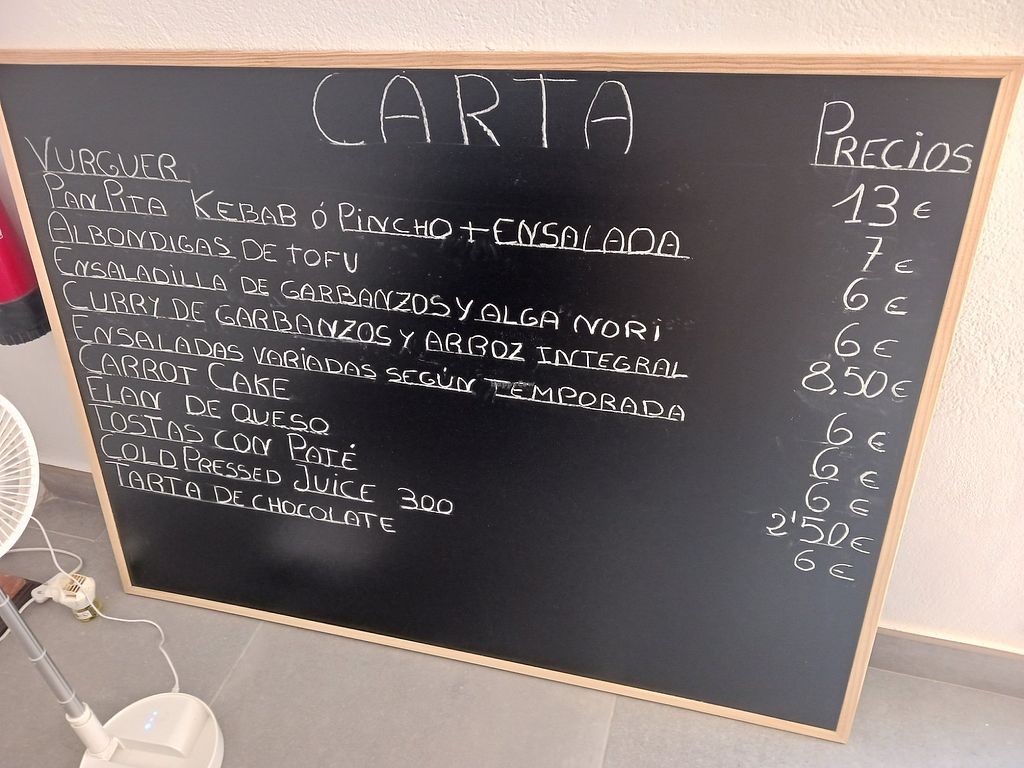 CARTA
PRECIOS
VURGUER 13 €
PAN PITA KEBAB ó PINCHO + ENSALADA 7 €
ALBONDIGAS DE TOFU 6 €
ENSALADILLA DE GARBANZOS Y ALGA NORI 6 €
CURRY DE GARBANZOS Y ARROZ INTEGRAL 8,50 €
ENSALADAS VARIADAS SEGÚN TEMPORADA 6 €
CARROT CAKE 6 €
FLAN DE QUESO 6 €
TOSTAS CON PATÉ 2'50 €
COLD PRESSED JUICE 300 6 €
TARTA DE CHOCOLATE